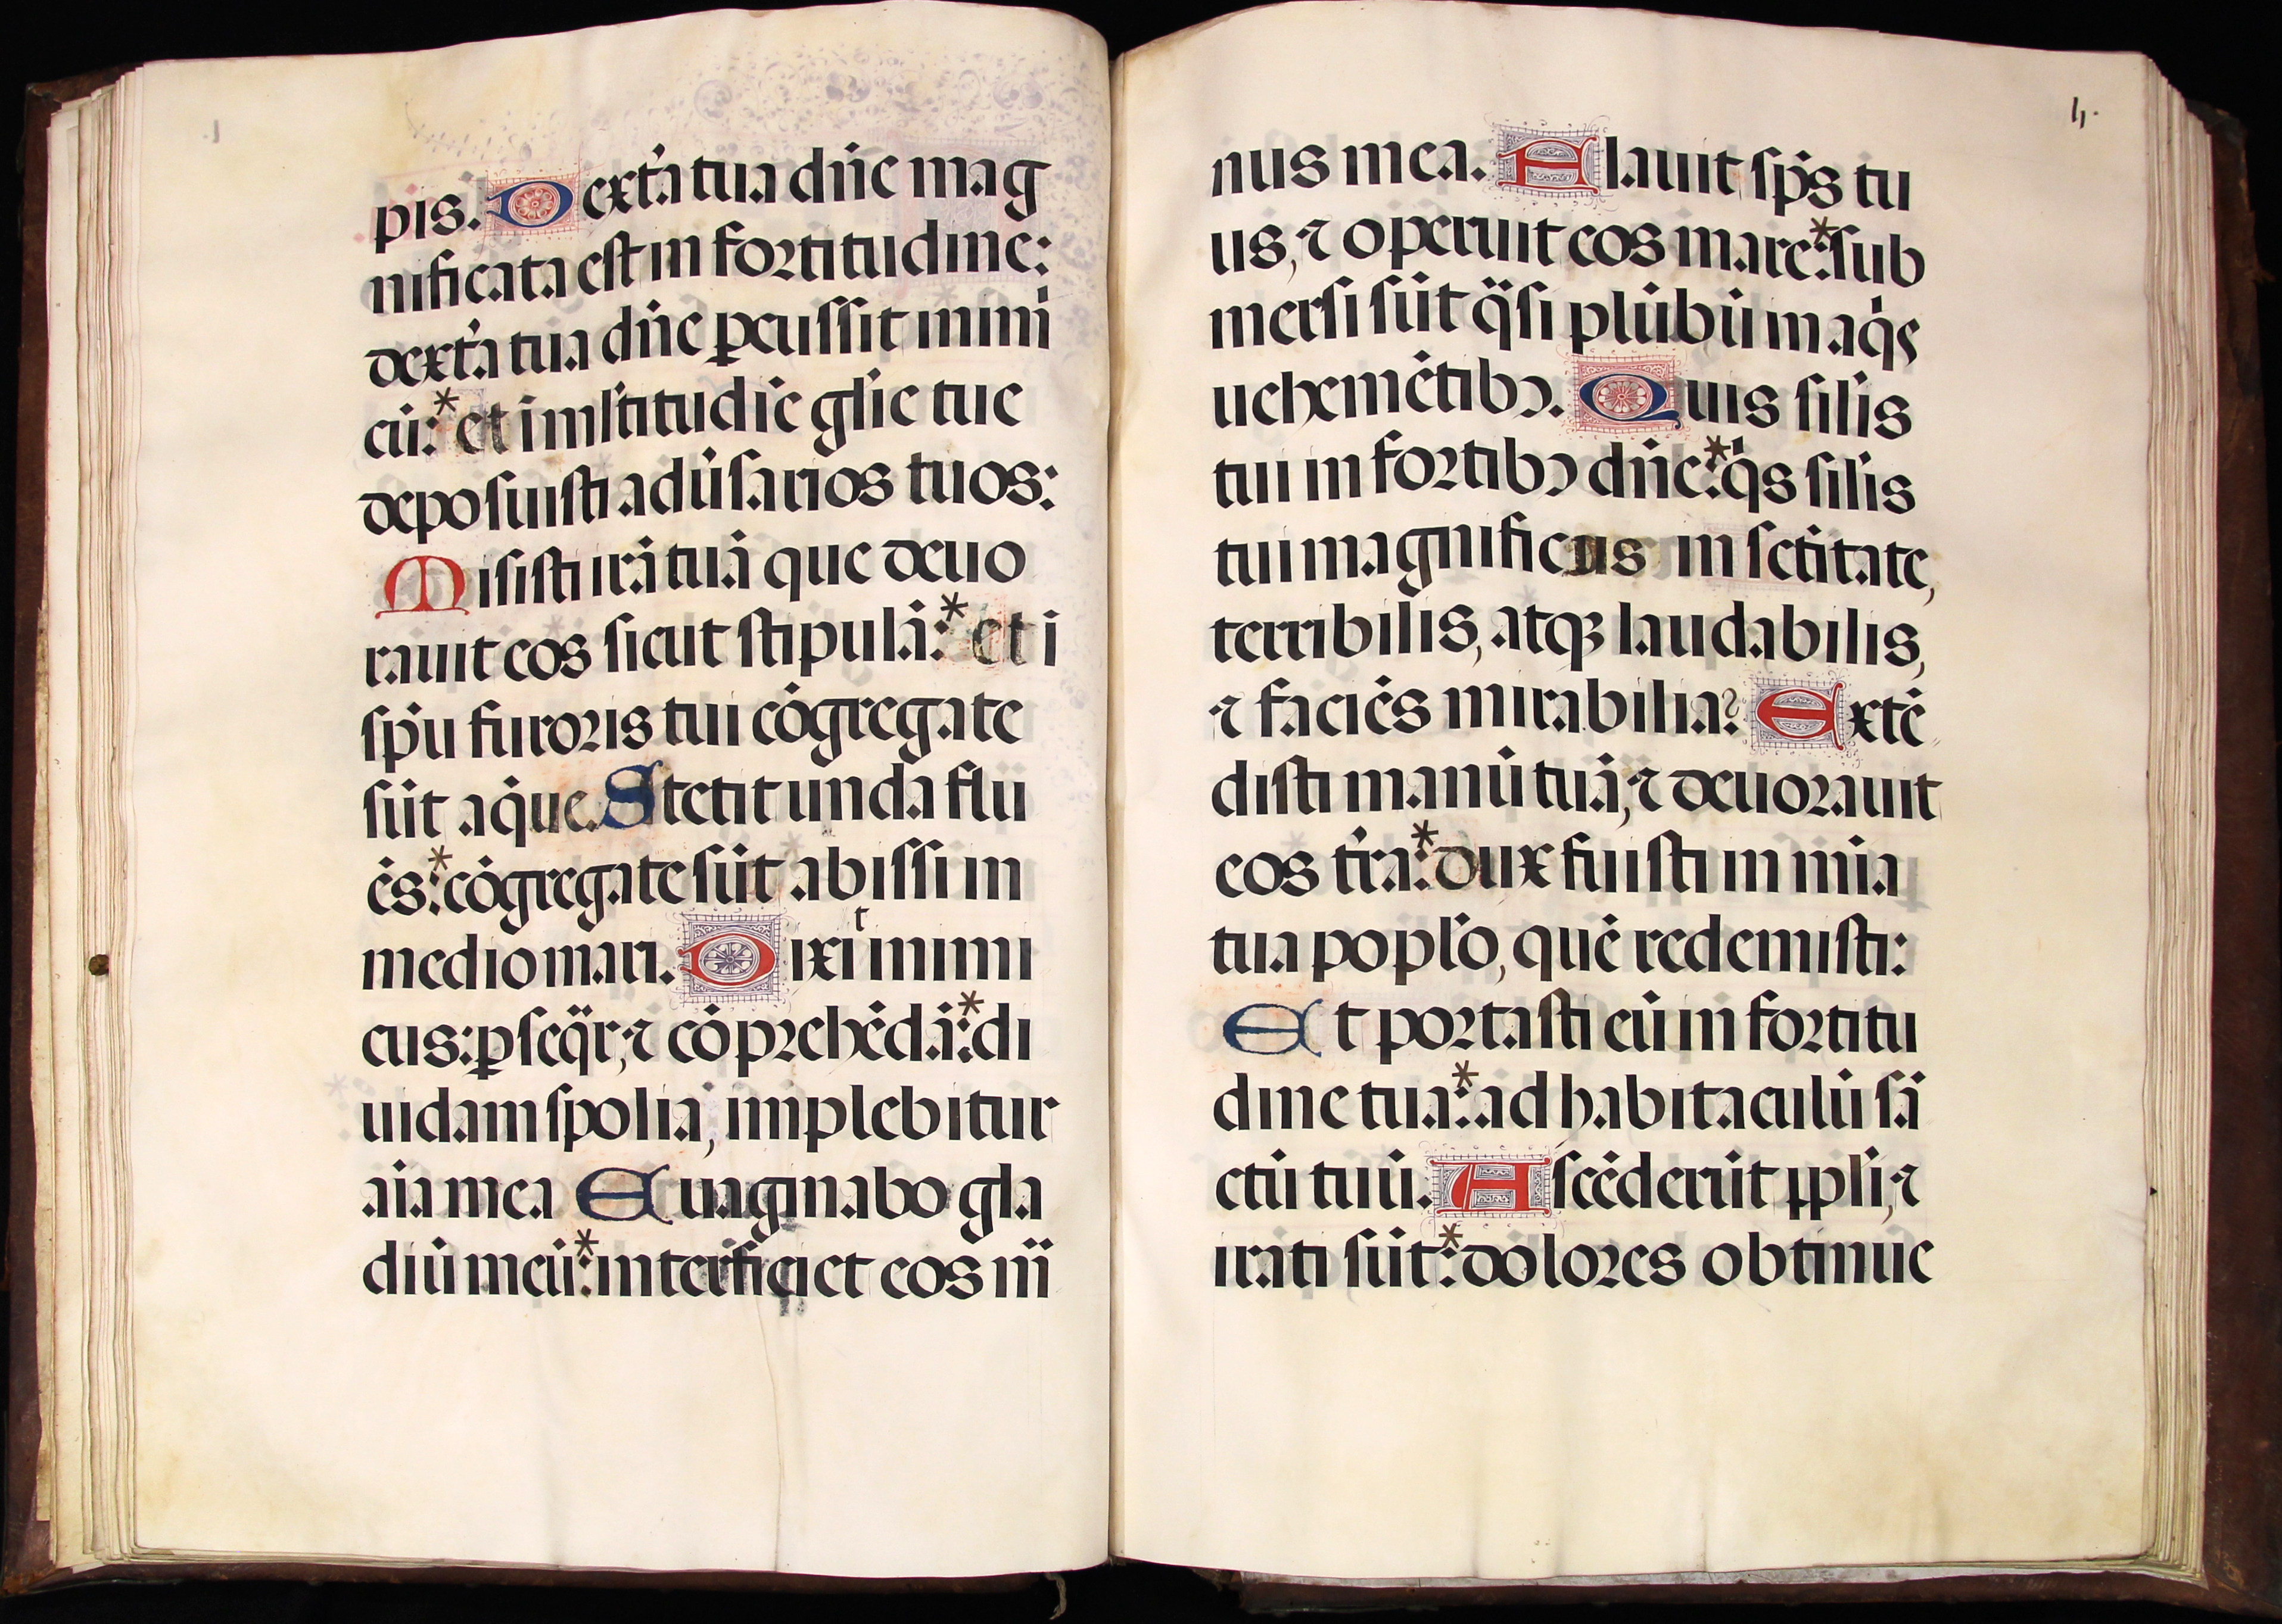 pis. Dext̾a tua dn̄e mag
nificata est in fortitudine:
dext̾a tua dn̄e ꝑcussit inimi
cū:* et ī mĺtitudīe gl̄ie tue
deposuisti adūsarios tuos:
Misisti irā tuā que deuo
rauit eos sicut stipulā:* et i
sp̄u furoris tui cōgregate
sūt aq̄ue. Stetit unda flu
ēs:* cōgregate sūt abissi in
medio mari. Dixit inimi
cus: ꝑseq̄r, ⁊ cōprehēdā:* di
uidam spolia, implebitur
aīa mea Euaginabo gla
diū meū:* interficiet eos m̄
h.
nus mea. Flauit sp̄s tu
us, ⁊ operuit eos mare:* sub
mersi sūt q̄si plūbū in aq̄s
uehemētibꝰ. Quis sil̄is
tui in fortibꝰ dn̄e:* q̄s sil̄is
tui magnificus in sc̄titate,
terribilis, atqꝫ laudabilis,
⁊ faciēs mirabilia? Extē
disti manū tuā, ⁊ deuorauit
eos t̄ra:* dux fuisti in mīa
tua popl̄o, quē redemisti:
Et portasti eū in fortitu
dine tua:* ad habitaculū sā
ctū tuū. Ascēderūt ppl̄i, ⁊
irati sūt:* dolores obtinue